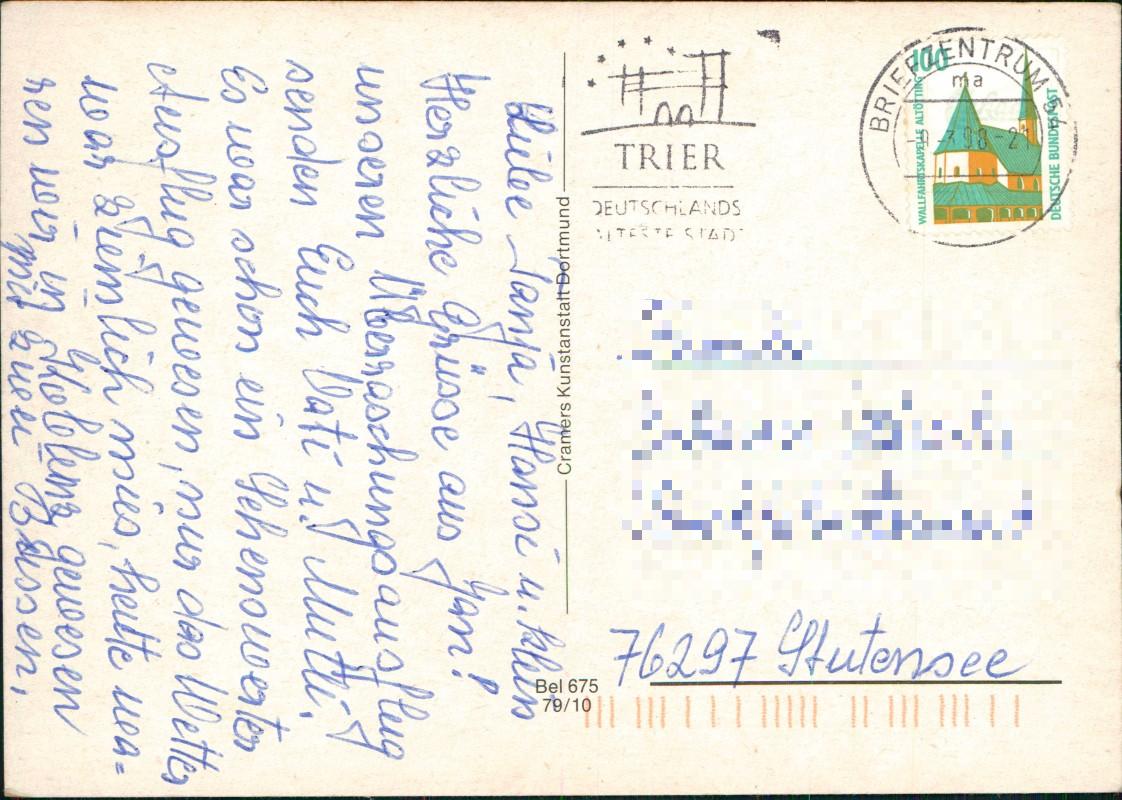 Liebe Tanja, Hansi u. klein
Jan!
Herzliche Grüsse aus
unseren Überraschungsausflug
senden Euch Vati u. Mutti.
Es war schon ein sehenswerter
Ausflug gewesen, nur das Wetter
war ziemlich mies, heute wa=
ren wir in Koblenz gewesen
mit zwei Bussen,
Cramers Kunstanstalt Dortmund
Bel 675
79/10
TRIER
DEUTSCHLANDS
ÄLTESTE STADT
BRIEFZENTRUM
ma
100
WALLFAHRTSKAPELLE ALTÖTTING
DEUTSCHE BUNDESPOST
76297 Stutensee